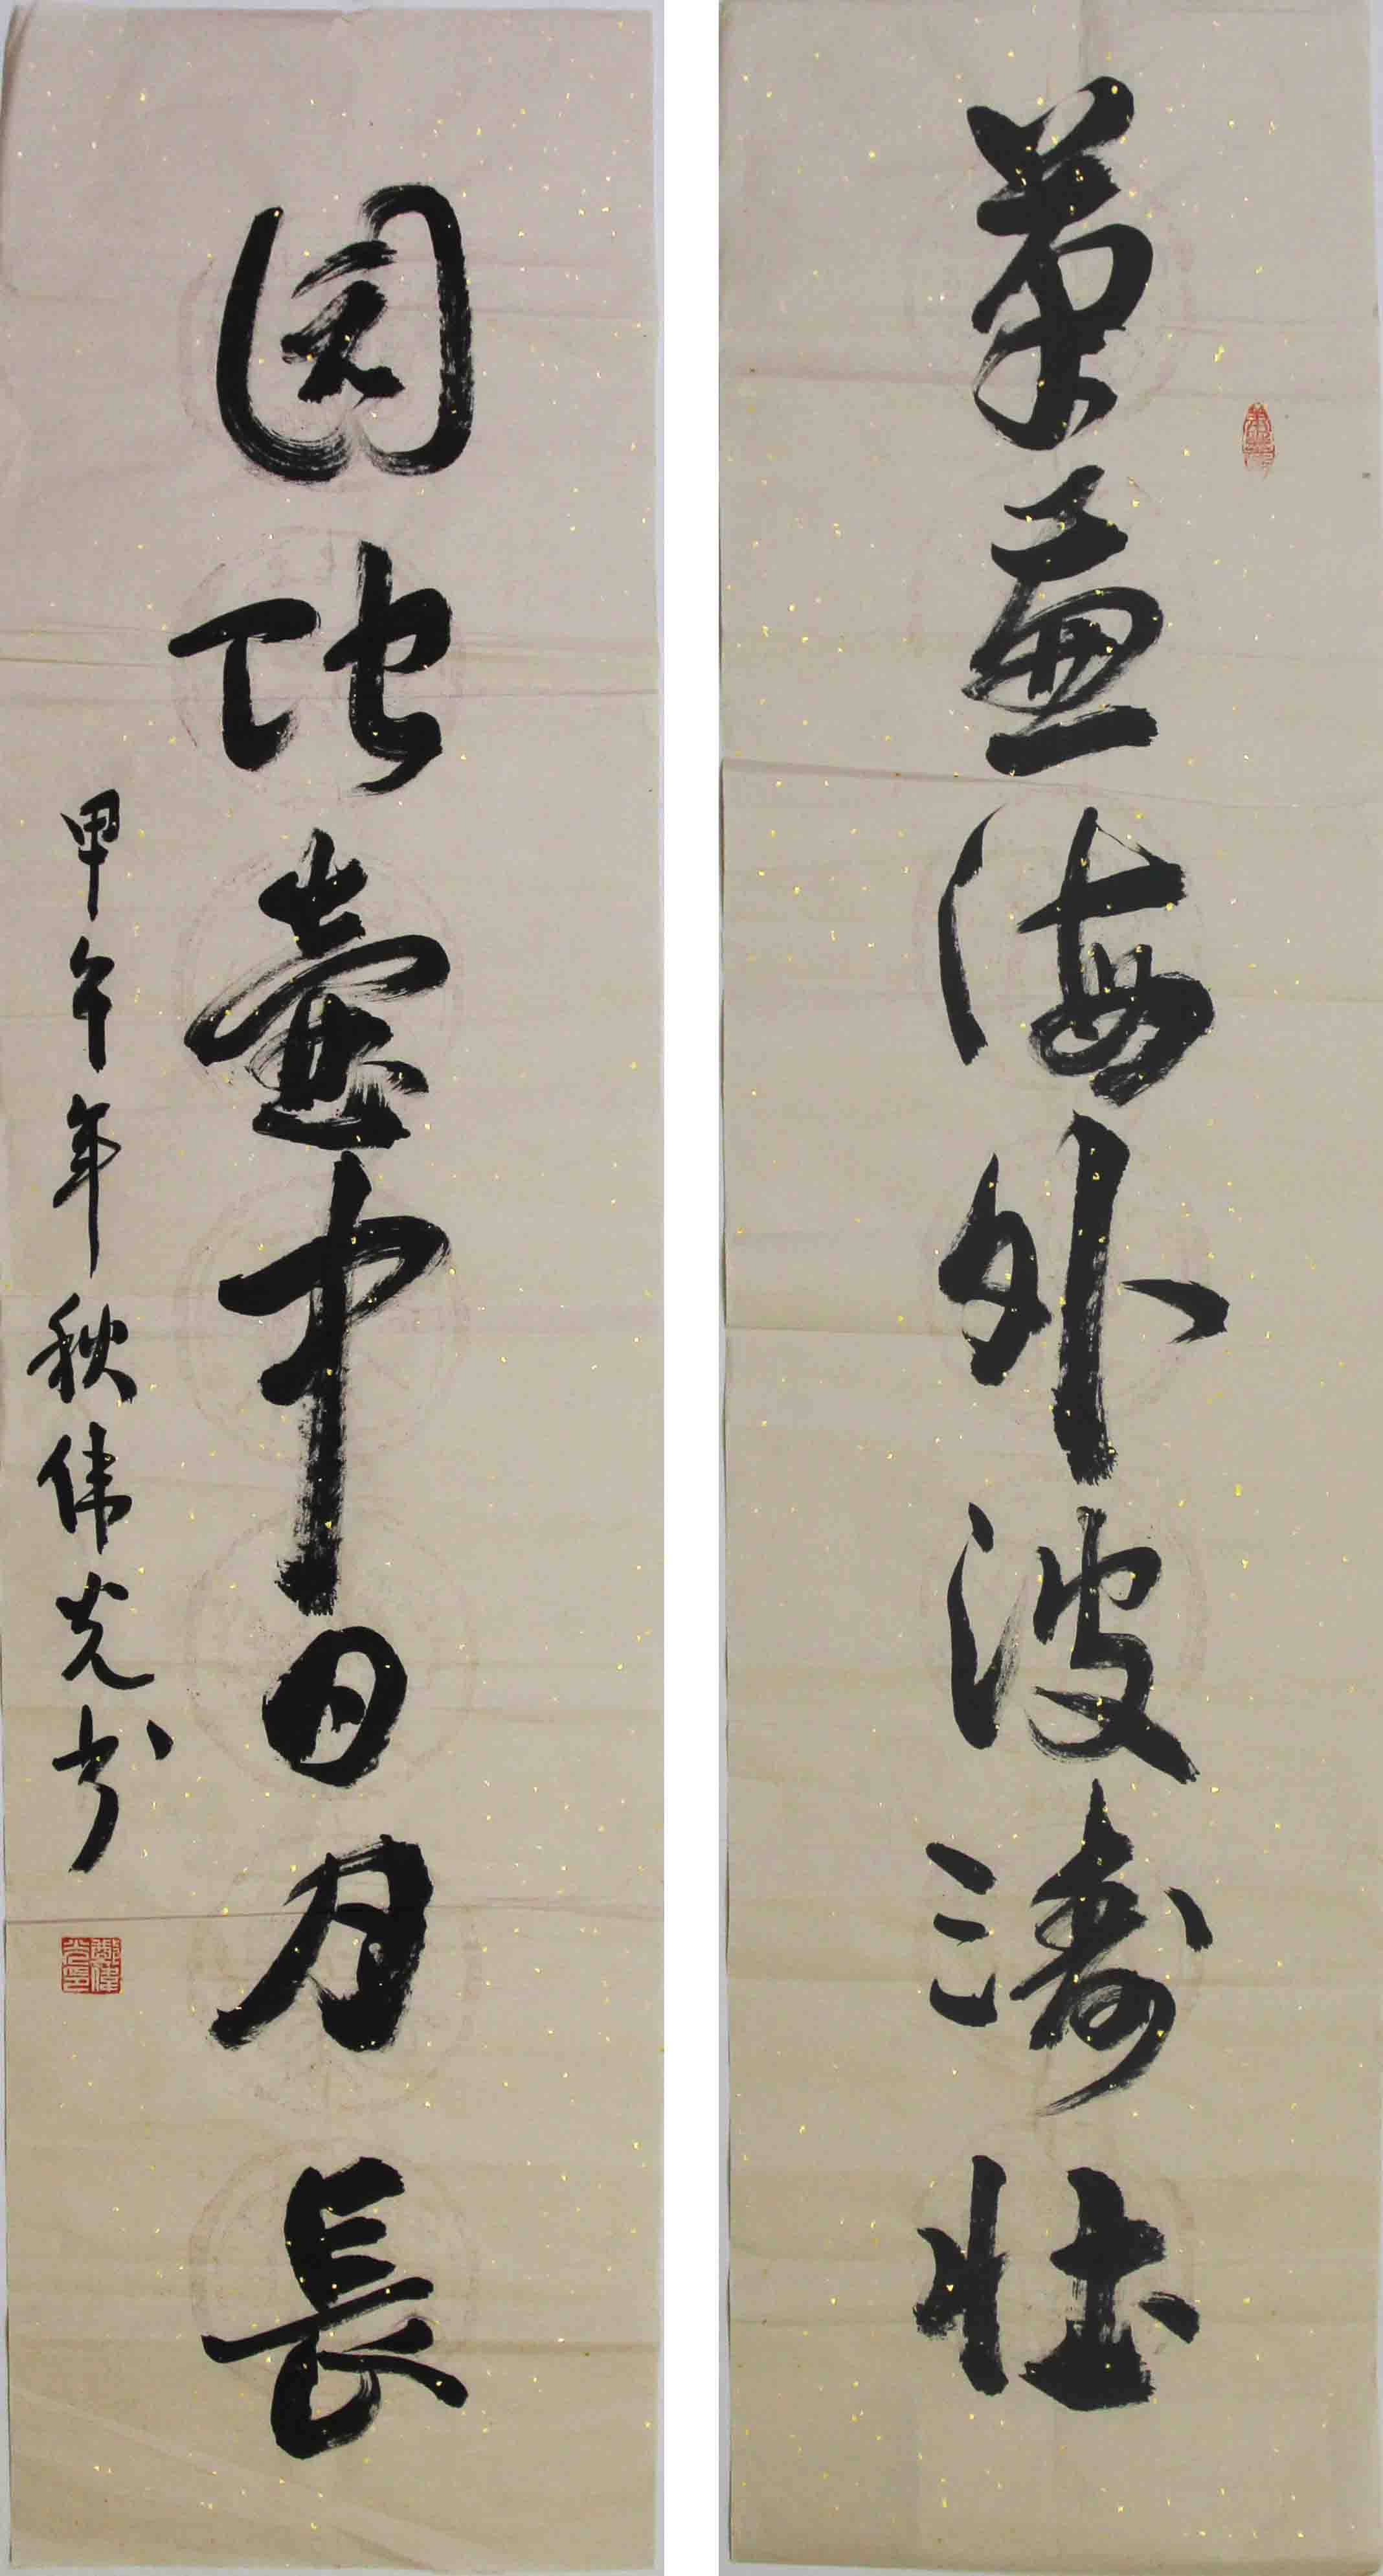 海外波涛壮
园地壶中日月長
甲午年秋伟光书